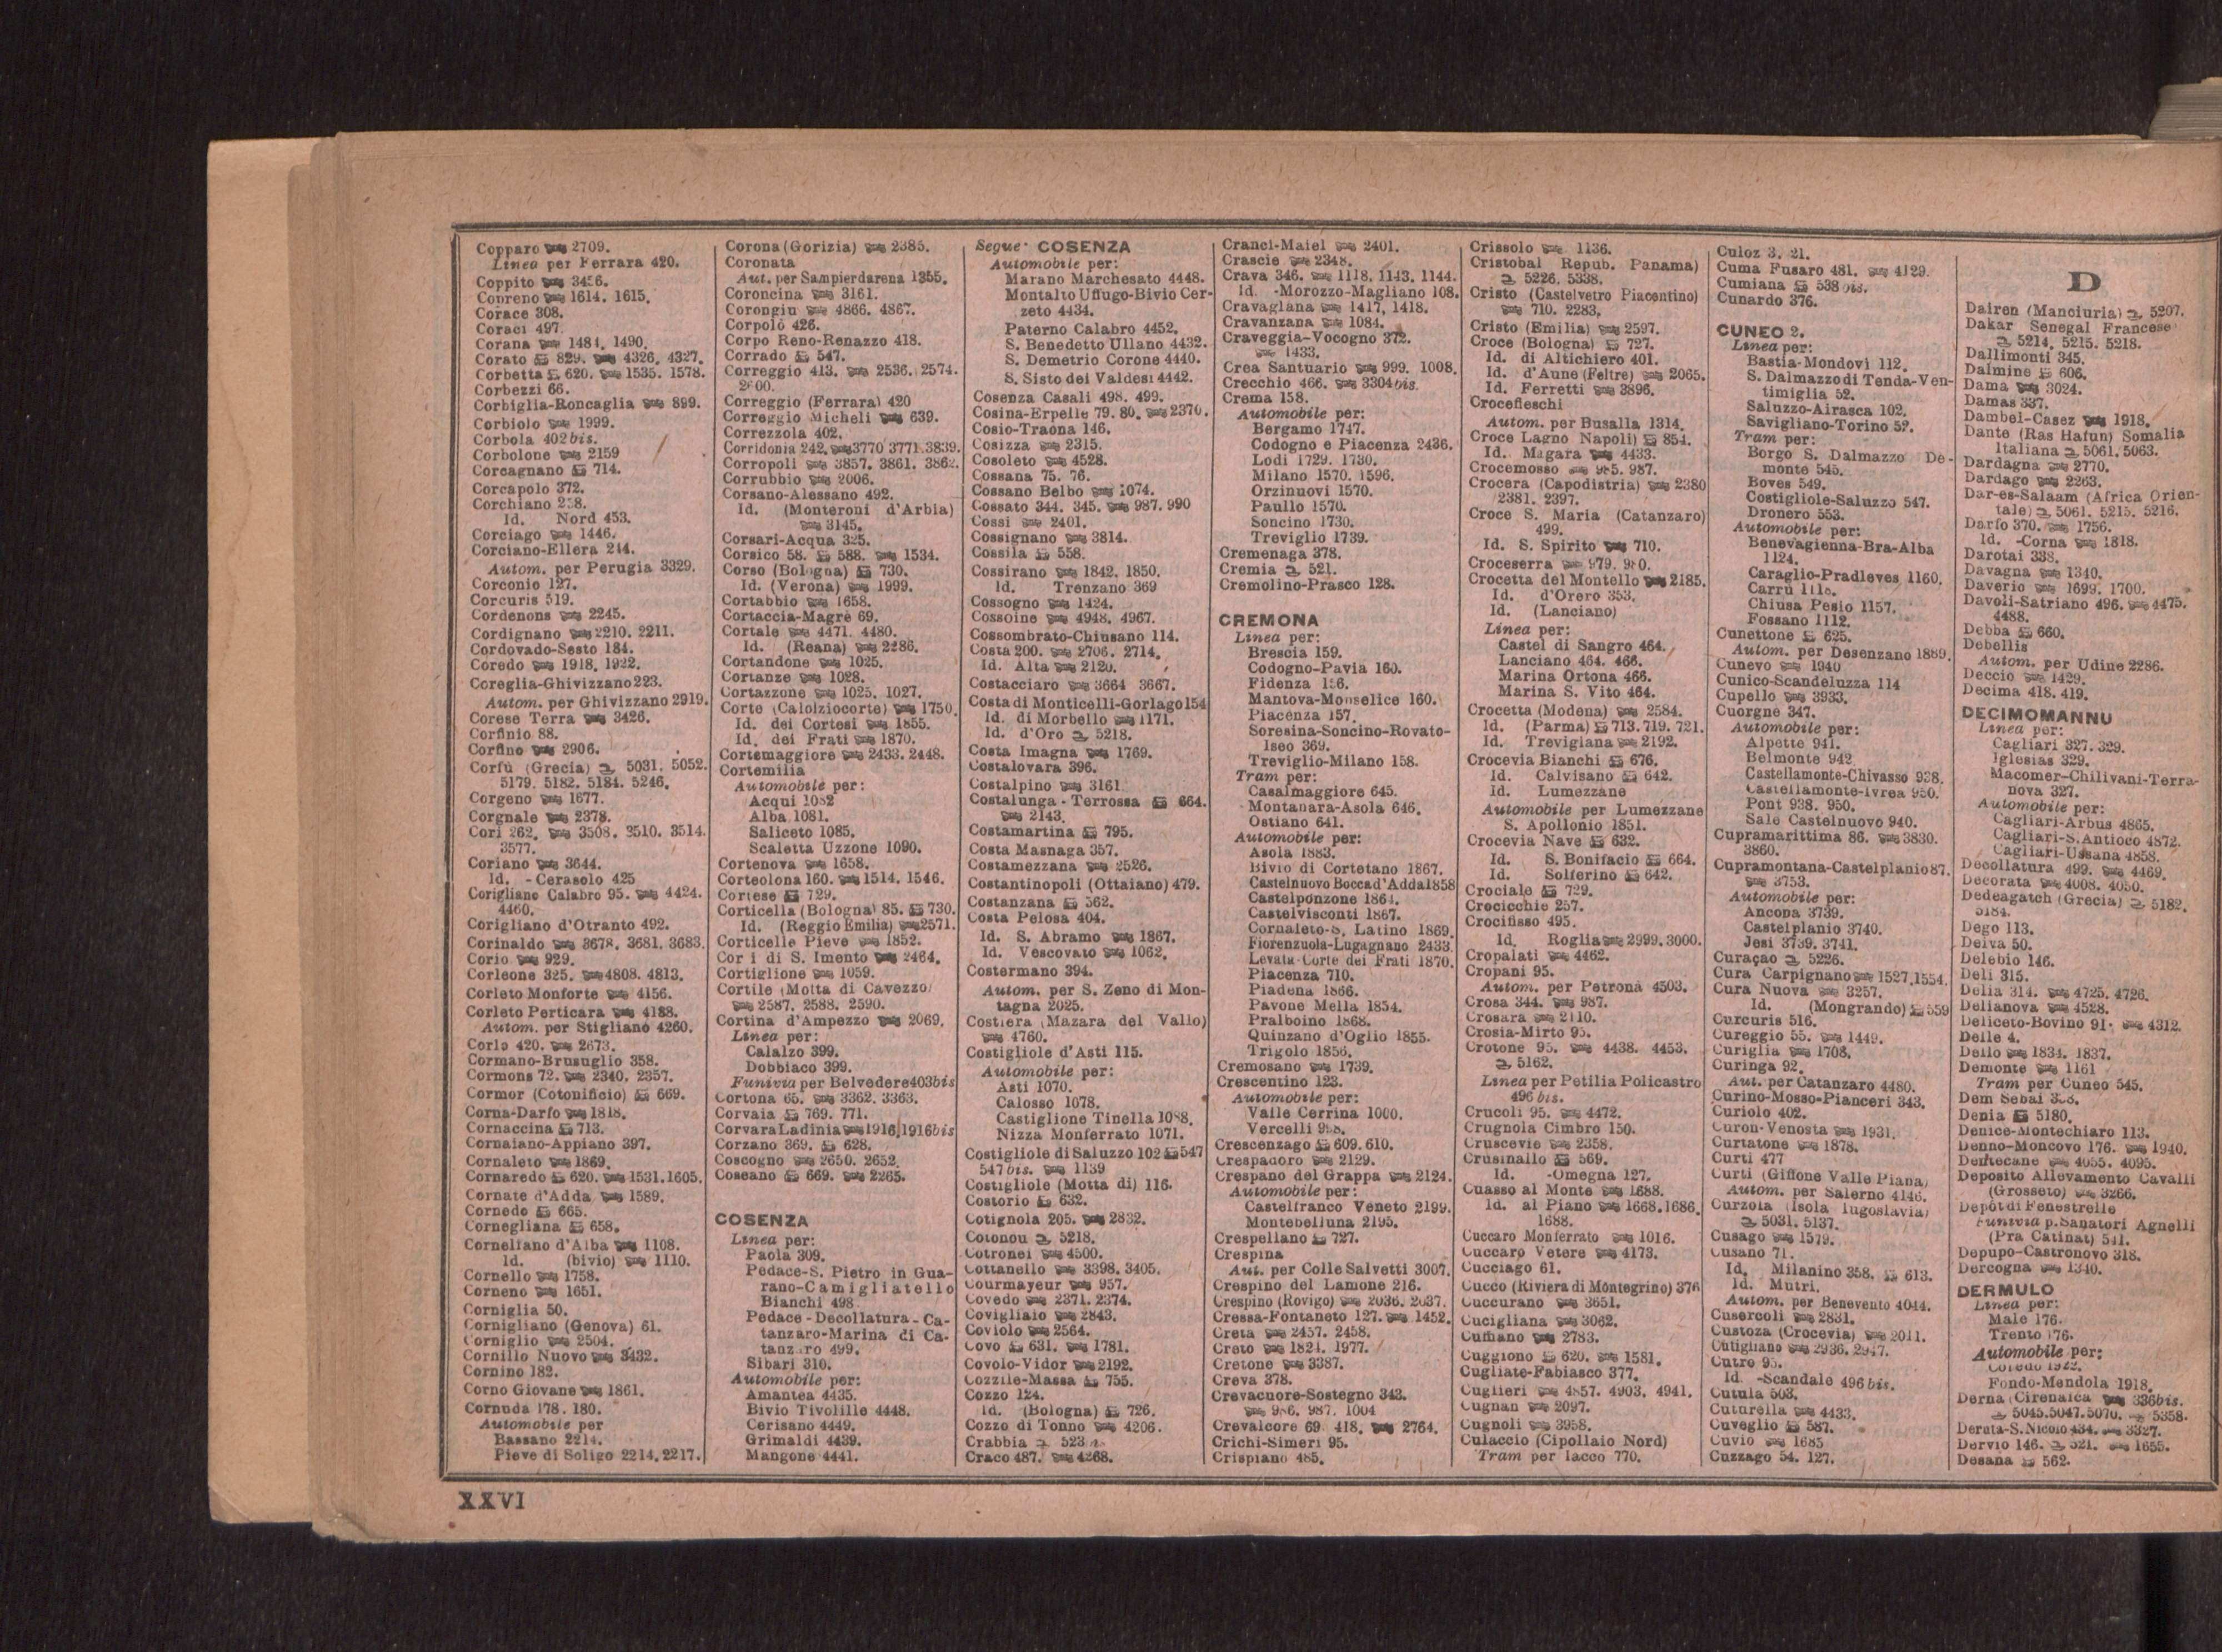 Copparo 2709.
Linea per Ferrara 420.
Coppito 3456.
Copreno 1614, 1615.
Corace 308.
Coraci 497.
Corana 1484, 1490.
Corato 829. 4326, 4327.
Corbetta 620. 1535. 1578.
Corbezzi 66.
Corbiglia-Roncaglia 899.
Corbiolo 1999.
Corbola 402 bis.
Corbolone 2159
Corcagnano 714.
Corcapolo 372.
Corchiano
Id. Nord 453.
Corciago 1446.
Corciano-Ellera 244.
Autom. per Perugia 3329.
Corconio 127.
Corcuris 519.
Cordenons 2245.
Cordignano 2210. 2211.
Cordovado-Sesto 184.
Coredo 1918, 1922.
Coreglia-Ghivizzano 223.
Autom. per Ghivizzano 2919.
Corese Terra 3426.
Corfinio 88.
Corfino 2906.
Corfù (Grecia) 5031. 5052.
5179. 5182. 5184. 5246.
Corgeno 1677.
Corgnale 2378.
Cori 262. 3508. 3510. 3514.
3577.
Coriano 3644.
Id. - Cerasolo 425
Corigliano Calabro 95. 4424.
4460.
Corigliano d'Otranto 492.
Corinaldo 3678. 3681. 3683.
Corio 929.
Corleone 325. 4808. 4813.
Corleto Monforte 4156.
Corleto Perticara 4188.
Autom. per Stigliano 4260.
Corlo 420. 2673.
Cormano-Brusuglio 358.
Cormons 72. 2340. 2357.
Cormor (Cotonificio) 669.
Corna-Darfo 1818.
Cornaccina 713.
Cornaiano-Appiano 397.
Cornaleto 1869.
Cornaredo 620. 1531. 1605.
Cornate d'Adda 1589.
Cornedo 665.
Cornegliana 658.
Cornellano d'Alba 1108.
Id. (bivio) 1110.
Cornello 1758.
Corneno 1651.
Corniglia 50.
Cornigliano (Genova) 61.
Corniglio 2504.
Cornillo Nuovo 3432.
Cornino 182.
Corno Giovane 1861.
Cornuda 178. 180.
Automobile per
Bassano 2214.
Pieve di Soligo 2214. 2217.
Corona (Gorizia) 2385.
Coronata
Aut. per Sampierdarena 1355.
Coroncina 3161.
Corongiu 4866. 4867.
Corpolò 426.
Corpo Reno-Renazzo 418.
Corrado 547.
Correggio 413. 2536. 2574.
2600.
Correggio (Ferrara) 420
Correggio Micheli 639.
Correzzola 402.
Corridonia 242. 3770 3771. 3839.
Corropoli 3857. 3861. 3862.
Corrubbio 2006.
Corsano-Alessano 492.
Id. (Monteroni d'Arbia)
3145.
Corsari-Acqua 325.
Corsico 58. 588. 1534.
Corso (Bologna) 730.
Id. (Verona) 1999.
Cortabbio 1658.
Cortaccia-Magrè 69.
Cortale 4471. 4480.
Id. (Reana) 2286.
Cortandone 1025.
Cortanze 1028.
Cortazzone 1025. 1027.
Corte (Calolziocorte) 1750.
Id. dei Cortesi 1855.
Id. dei Frati 1870.
Cortemaggiore 2433. 2448.
Cortemilia
Automobile per:
Acqui 1082
Alba 1081.
Saliceto 1085.
Scaletta Uzzone 1090.
Cortenova 1658.
Corteolona 160. 1514. 1546.
Cortese 729.
Corticella (Bologna) 85. 730.
Id. (Reggio Emilia) 2571.
Corticelle Pieve 1852.
Cor i di S. Imento 2464.
Cortiglione 1059.
Cortile (Motta di Cavezzo)
2587. 2588. 2590.
Cortina d'Ampezzo 2069.
Linea per:
Calalzo 399.
Dobbiaco 399.
Funivia per Belvedere 403 bis
Cortona 65. 3362. 3363.
Corvaia 769. 771.
Corvara Ladinia 1916, 1916 bis
Corzano 369. 628.
Coscogno 2650. 2652.
Coseano 669. 2265.
COSENZA
Linea per:
Paola 309.
Pedace-S. Pietro in Gua-
rano-Camigliatello
Bianchi 498
Pedace-Decollatura-Ca-
tanzaro-Marina di Ca-
tanzaro 499.
Sibari 310.
Automobile per:
Amantea 4435.
Bivio Tivolille 4448.
Cerisano 4449.
Grimaldi 4439.
Mangone 4441.
Segue: COSENZA
Automobile per:
Marano Marchesato 4448.
Montalto Uffugo-Bivio Cer-
zeto 4434.
Paterno Calabro 4452.
S. Benedetto Ullano 4432.
S. Demetrio Corone 4440.
S. Sisto dei Valdesi 4442.
Cosenza Casali 498. 499.
Cosina-Erpelle 79. 80. 2370.
Cosio-Traona 146.
Cosizza 2315.
Cosoleto 4528.
Cossana 75. 76.
Cossano Belbo 1074.
Cossato 344. 345. 987. 990
Cossi 2401.
Cossignano 3814.
Cossila 558.
Cossirano 1842. 1850.
Id. Trenzano 369
Cossogno 1424.
Cossoine 4948. 4967.
Cossombrato-Chiusano 114.
Costa 200. 2706. 2714.
Id. Alta 2120.
Costacciaro 3664 3667.
Costa di Monticelli-Gorlago 154
Id. di Morbello 1171.
Id. d'Oro 5218.
Costa Imagna 1769.
Costalovara 396.
Costalpino 3161
Costalunga - Terrossa 664.
2143.
Costamartina 795.
Costa Masnaga 357.
Costamezzana 2526.
Costantinopoli (Ottaiano) 479.
Costanzana 562.
Costa Pelosa 404.
Id. S. Abramo 1867.
Id. Vescovato 1062.
Costermano 394.
Autom. per S. Zeno di Mon-
tagna 2025.
Costiera (Mazara del Vallo)
4760.
Costigliole d'Asti 115.
Automobile per:
Asti 1070.
Calosso 1078.
Castiglione Tinella 1088.
Nizza Monferrato 1071.
Costigliole di Saluzzo 102 547
547 bis. 1139
Costigliole (Motta di) 116.
Costorio 632.
Cotignola 205. 2832.
Cotonou 5218.
Cotronei 4500.
Cottanello 3398. 3405.
Courmayeur 957.
Covedo 2371. 2374.
Covigliaio 2843.
Coviolo 2564.
Covo 631. 1781.
Covolo-Vidor 2192.
Cozzile-Massa 755.
Cozzo 124.
Id. (Bologna) 726.
Cozzo di Tonno 4206.
Crabbia 523
Craco 487. 4268.
Cranci-Maiel 2401.
Crascie 2348.
Crava 346. 1118. 1143. 1144.
Id. -Morozzo-Magliano 108.
Cravagliana 1417. 1418.
Cravanzana 1084.
Craveggia-Vocogno 372.
1433.
Crea Santuario 999. 1008.
Crecchio 466. 3304 bis.
Crema 158.
Automobile per:
Bergamo 1747.
Codogno e Piacenza 2436.
Lodi 1729. 1730.
Milano 1570. 1596.
Orzinuovi 1570.
Paullo 1570.
Soncino 1730.
Treviglio 1739.
Cremenaga 378.
Cremia 521.
Cremolino-Prasco 128.
CREMONA
Linea per:
Brescia 159.
Codogno-Pavia 160.
Fidenza 156.
Mantova-Monselice 160.
Piacenza 157.
Soresina-Soncino-Rovato-
Iseo 369.
Treviglio-Milano 158.
Tram per:
Casalmaggiore 645.
Montanara-Asola 646.
Ostiano 641.
Automobile per:
Asola 1883.
Bivio di Cortetano 1867.
Castelnuovo Bocca d'Adda 1858
Castelponzone 1864.
Castelvisconti 1867.
Cornaleto-S. Latino 1869.
Fiorenzuola-Lugagnano 2433.
Levata-Corte dei Frati 1870.
Piacenza 710.
Piadena 1866.
Pavone Mella 1854.
Pralboino 1868.
Quinzano d'Oglio 1855.
Trigolo 1856.
Cremosano 1739.
Crescentino 123.
Automobile per:
Valle Cerrina 1000.
Vercelli 998.
Crescenzago 609. 610.
Crespadoro 2129.
Crespano del Grappa 2124.
Automobile per:
Castelfranco Veneto 2199.
Montebelluna 2195.
Crespellano 727.
Crespina
Aut. per Colle Salvetti 3007.
Crespino del Lamone 216.
Crespino (Rovigo) 2036. 2037.
Cressa-Fontaneto 127. 1452.
Creta 2457. 2458.
Creto 1824. 1977.
Cretone 3387.
Creva 378.
Crevacuore-Sostegno 343.
986. 987. 1004
Crevalcore 69 418. 2764.
Crichi-Simeri 95.
Crispiano 485.
Crissolo 1136.
Cristobal Repub. Panama)
5226. 5338.
Cristo (Castelvetro Piacentino)
710. 2283.
Cristo (Emilia) 2597.
Croce (Bologna) 727.
Id. di Altichiero 401.
Id. d'Aune (Feltre) 2065.
Id. Ferretti 3896.
Crocefieschi
Autom. per Busalla 1314.
Croce Lagno Napoli) 854.
Id. Magara 4433.
Crocemosso 985. 987.
Crocera (Capodistria) 2380
2381. 2397.
Croce S. Maria (Catanzaro)
499.
Id. S. Spirito 710.
Croceserra 979. 980.
Crocetta del Montello 2185.
Id. d'Orero 353.
Id. (Lanciano)
Linea per:
Castel di Sangro 464.
Lanciano 464. 466.
Marina Ortona 466.
Marina S. Vito 464.
Crocetta (Modena) 2584.
Id. (Parma) 713. 719. 721.
Id. Trevigiana 2192.
Crocevia Bianchi 676.
Id. Calvisano 642.
Id. Lumezzane
Automobile per Lumezzane
S. Apollonio 1851.
Crocevia Nave 632.
Id. S. Bonifacio 664.
Id. Solferino 642.
Crociale 729.
Crocicchie 257.
Crocifisso 495.
Id. Roglia 2999. 3000.
Cropalati 4462.
Cropani 95.
Autom. per Petronà 4503.
Crosa 344. 987.
Crosara 2110.
Crosia-Mirto 95.
Crotone 95. 4438. 4453.
5162.
Linea per Petilia Policastro
496 bis.
Crucoli 95. 4472.
Crugnola Cimbro 150.
Cruscevie 2358.
Crusinallo 569.
Id. -Omegna 127.
Cuasso al Monte 1688.
Id. al Piano 1668. 1686.
1688.
Cuccaro Monferrato 1016.
Cuccaro Vetere 4173.
Cucciago 61.
Cucco (Riviera di Montegrino) 376
Cuccurano 3651.
Cucigliana 3062.
Cufiano 2783.
Cuggiono 620. 1581.
Cugliate-Fabiasco 377.
Cuglieri 4857. 4903. 4941.
Cugnan 2097.
Cugnoli 3958.
Culaccio (Cipollaio Nord)
Tram per Iacco 770.
Culoz 3. 21.
Cuma Fusaro 481. 4129.
Cumiana 538 bis.
Cunardo 376.
CUNEO 2.
Linea per:
Bastia-Mondovì 112.
S. Dalmazzo di Tenda-Ven-
timiglia 52.
Saluzzo-Airasca 102.
Savigliano-Torino 52.
Tram per:
Borgo S. Dalmazzo De-
monte 545.
Boves 549.
Costigliole-Saluzzo 547.
Dronero 553.
Automobile per:
Benevagienna-Bra-Alba
1124.
Caraglio-Pradleves 1160.
Carrù
Chiusa Pesio 1157.
Fossano 1112.
Cunettone 625.
Autom. per Desenzano 1889.
Cunevo 1940
Cunico-Scandeluzza 114
Cupello 3933.
Cuorgnè 347.
Automobile per:
Alpette 941.
Belmonte 942
Castellamonte-Chivasso 938.
Castellamonte-Ivrea 950.
Pont 938. 950.
Sale Castelnuovo 940.
Cupramarittima 86. 3830.
3860.
Cupramontana-Castelplanio 87.
3753.
Automobile per:
Ancona 3739.
Castelplanio 3740.
Jesi 3739. 3741.
Curaçao 5226.
Cura Carpignano 1527. 1554.
Cura Nuova 3257.
Id. (Mongrando) 559
Curcuris 516.
Cureggio 55. 1449.
Curiglia 1708.
Curinga 92.
Aut. per Catanzaro 4480.
Curino-Mosso-Pianceri 343.
Curiolo 402.
Curon-Venosta 1931.
Curtatone 1878.
Curti 477
Curti (Giffone Valle Piana)
Autom. per Salerno 4146.
Curzola (Isola Iugoslavia)
5031. 5137.
Cusago 1579.
Cusano 71.
Id. Milanino 358. 613.
Id. Mutri.
Autom. per Benevento 4044.
Cusercoli 2831.
Custoza (Crocevia) 2011.
Cutigliano 2936. 2947.
Cutro 95.
Id. -Scandale 496 bis.
Cutula 503.
Cuturella 4433.
Cuveglio 587.
Cuvio 1685
Cuzzago 54. 127.
D
Dairen (Manciuria) 5207.
Dakar Senegal Francese
5214. 5215. 5218.
Dallimonti 345.
Dalmine 606.
Dama 3024.
Damas 337.
Dambel-Casez 1918.
Dante (Ras Hafun) Somalia
Italiana 5061. 5063.
Dardagna 2770.
Dardago 2263.
Dar-es-Salaam (Africa Orien-
tale) 5061. 5215. 5216.
Darfo 370. 1756.
Id. -Corna 1818.
Darotai 338.
Davagna 1340.
Daverio 1699. 1700.
Davoli-Satriano 496. 4475.
4488.
Debba 660.
Debellis
Autom. per Udine 2286.
Deccio 1429.
Decima 418. 419.
DECIMOMANNU
Linea per:
Cagliari 327. 329.
Iglesias 329.
Macomer-Chilivani-Terra-
nova 327.
Automobile per:
Cagliari-Arbus 4865.
Cagliari-S. Antioco 4872.
Cagliari-Ussana 4858.
Decollatura 499. 4469.
Decorata 4008. 4050.
Dedeagatch (Grecia) 5182.
5184.
Dego 113.
Deiva 50.
Delebio 146.
Deli 315.
Delia 314. 4725. 4726.
Delianova 4528.
Deliceto-Bovino 91. 4312.
Delle 4.
Dello 1834. 1837.
Demonte 1161
Tram per Cuneo 545.
Dem Sebai
Denia 5180.
Denice-Montechiaro 113.
Denno-Moncovo 176. 1940.
Dentecane 4055. 4095.
Deposito Allevamento Cavalli
(Grosseto) 3266.
Depôt di Fenestrelle
Funivia p. Sanatori Agnelli
(Pra Catinat) 541.
Depupo-Castronovo 318.
Dercogna 1340.
DERMULO
Linea per:
Malè 176.
Trento 176.
Automobile per:
Coredo 1922.
Fondo-Mendola 1918.
Derna (Cirenaica 336 bis.
5045. 5047. 5070. 5358.
Deruta-S. Nicolò 434. 3327.
Dervio 146. 521. 1655.
Desana 562.
XXVI